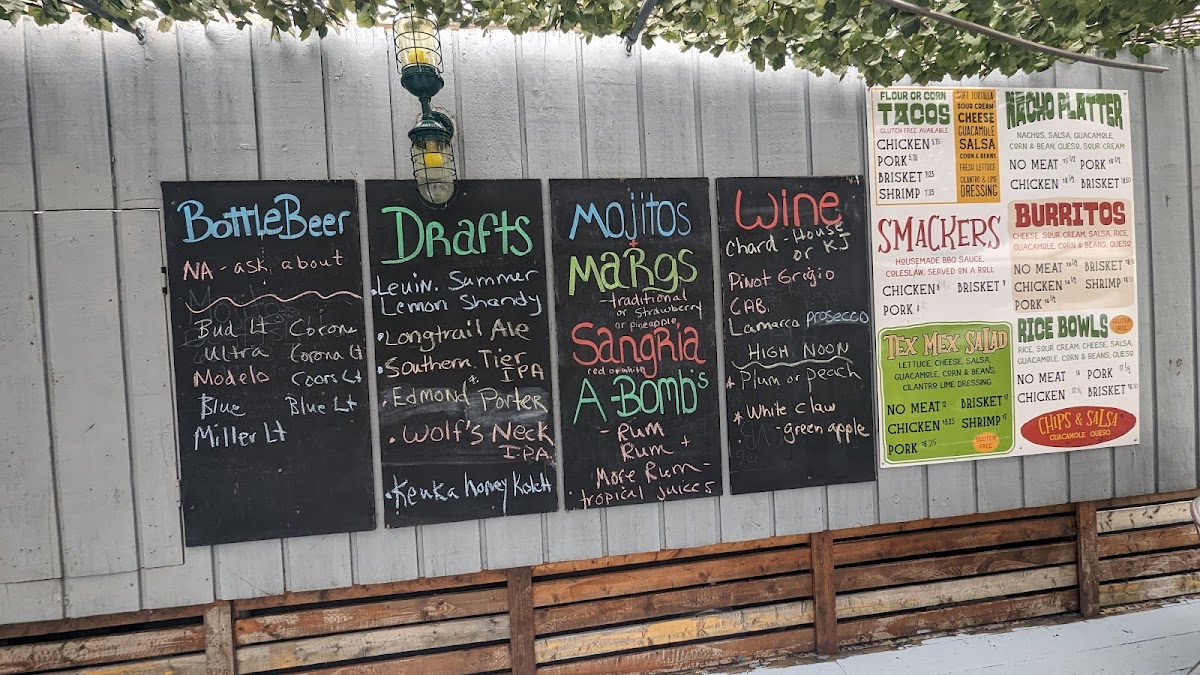 BottleBeer
NA - ask about
Bud Lt
Ultra
Modelo
Blue
Miller Lt
Corona Lt
Coors Lt
Blue Lt
Drafts
Lemon Shandy
• Longtrail Ale
• Southern Tier
IPA
• Edmond Porter
• Wolf's Neck
IPA
• Keuka honey
Mojitos
+
Margs
- traditional
or Strawberry
or pineapple
Sangria
red or white
A-Bomb's
- Rum
Rum +
More Rum -
tropical juices
Wine
Chard - House
or KJ
Pinot Grigio
CAB.
Lamarca prosecco
HIGH NOON
* Plum or peach
* White Claw
- green apple
FLOUR OR CORN
TACOS
GLUTEN FREE AVAILABLE
CHICKEN
PORK
BRISKET
SHRIMP
SOFT TORTILLA
SOUR CREAM
CHEESE
GUACAMOLE
SALSA
CORN & BEANS
FRESH LETTUCE
CILANTRO & LIME
DRESSING
NACHO PLATTER
NACHOS, SALSA, GUACAMOLE,
CORN & BEAN, QUESO, SOUR CREAM
NO MEAT PORK
CHICKEN BRISKET
SMACKERS
HOUSEMADE BBQ SAUCE,
COLESLAW, SERVED ON A ROLL
CHICKEN BRISKET
PORK
BURRITOS
CHEESE, SOUR CREAM, SALSA, RICE,
GUACAMOLE, CORN & BEANS, QUESO
NO MEAT BRISKET
CHICKEN SHRIMP
PORK
TEX MEX SALAD
LETTUCE, CHEESE, SALSA,
GUACAMOLE, CORN & BEANS,
CILANTRO LIME DRESSING
NO MEAT BRISKET
CHICKEN SHRIMP
PORK
GLUTEN
FREE
RICE BOWLS
GLUTEN
FREE
RICE, SOUR CREAM, CHEESE, SALSA,
GUACAMOLE, CORN & BEANS, QUESO
NO MEAT PORK
CHICKEN BRISKET
CHIPS & SALSA
GUACAMOLE QUESO